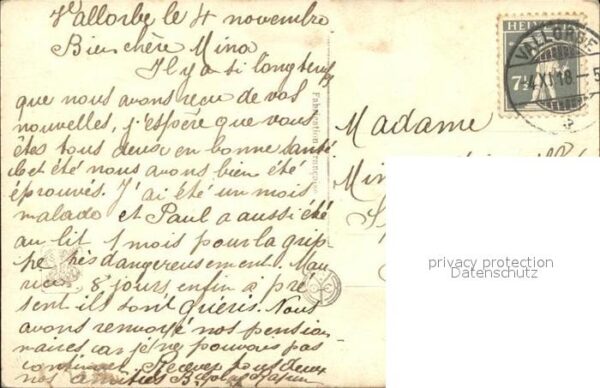 Vallorbe le 4 novembre
Bien chère Mina
Il y a si longtemps
que nous avons reçu de vos
nouvelles, j'espère que vous
êtes tous deux en bonne santé
Cet été nous avons bien été
éprouvés. J'ai été un mois
malade et Paul a aussi été
au lit 1 mois pour la grip-
pe très dangereusement. Mau-
rice, 8 jours enfin à pré
sent ils sont guéris. Nous
avons renvoyé nos pension
naires car je ne pouvais pas
continuer. Recevez tous deux
nos amitiés
Fabrication Française
HELVETIA
7½
VALLORBE
4.XI.18-5
Madame
privacy protection
Datenschutz